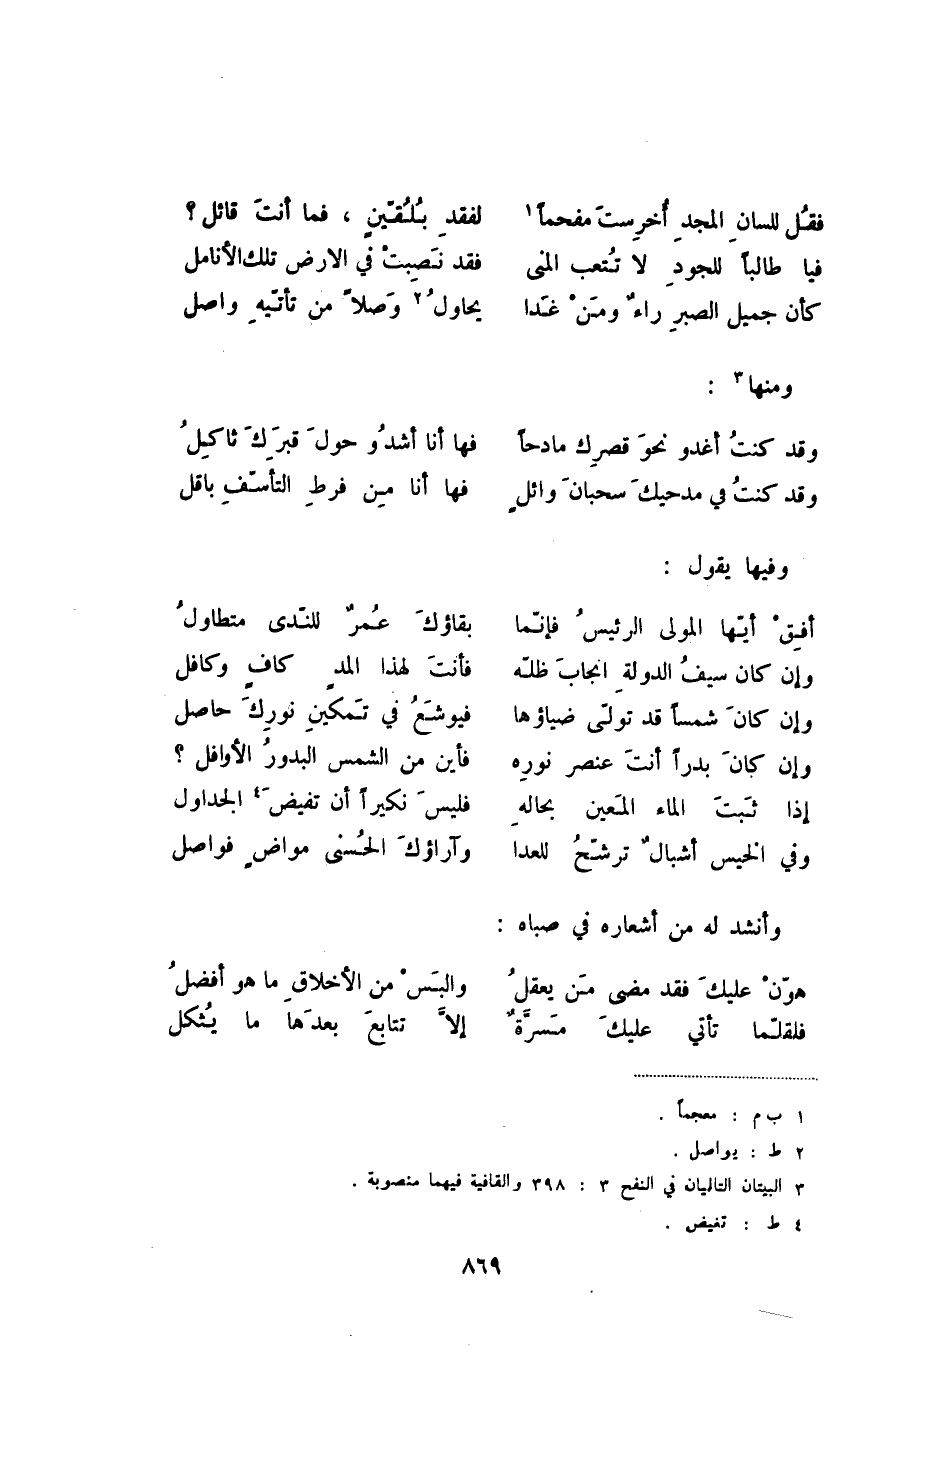 فقُل للسانِ المجدِ أُخرِستَ مفحماً١ لفقدِ بُلُقّينٍ ، فما أنتَ قائل ؟
فيا طالباً للجودِ لا تُتعب المنى فقد نَصِبتْ في الارض تلك الأنامل
كأن جميل الصبرِ راءٌ ومَنْ غَدا يحاولُ٢ وَصلاً من تأتّيهِ واصل
ومنها٣ :
وقد كنتُ أغدو نحوَ قصرِك مادحاً فها أنا أشدُو حولَ قبرَِكَ ثاكِلُ
وقد كنتُ في مدحيكَ سحبانَ وائلٍ فها أنا مِن فرطِ التأسّفِ باقل
وفيها يقول :
أفِقْ أيّها المولى الرئيسُ فإنّما بقاؤكَ عُمرٌ للنّدى متطاولُ
وإن كان سيفُ الدولةِ انجابَ ظلّه فأنتَ لهذا المدِ كافٍ وكافل
وإن كانَ شمساً قد تولّى ضياؤها فيوشَعُ في تَمكينِ نورِكَ حاصل
وإن كانَ بدراً أنتَ عنصر نورِه فأين من الشمس البدورُ الأوافل ؟
إذا ثَبَتَ الماء المَعين بحالهِ فليسَ نكيراً أن تفيضَ٤ الجداول
وفي الخيس أشبالٌ ترشّحُ للعدا وآراؤكَ الحُسنى مواضٍ فواصل
وأنشد له من أشعاره في صباه :
هوّنْ عليكَ فقد مضى مَن يعقلُ والبَسْ من الأخلاقِ ما هو أفضلُ
فلقلّما تأتي عليكَ مَسرَّةٌ إلاَّ تتابعَ بعدَها ما يُثكل
١ ب م : معجماً .
٢ ط : يواصل .
٣ البيتان التاليان في النفح ٣ : ٣٩٨ والقافية فيهما منصوبة .
٤ ط : تغيض .
٨٦٩